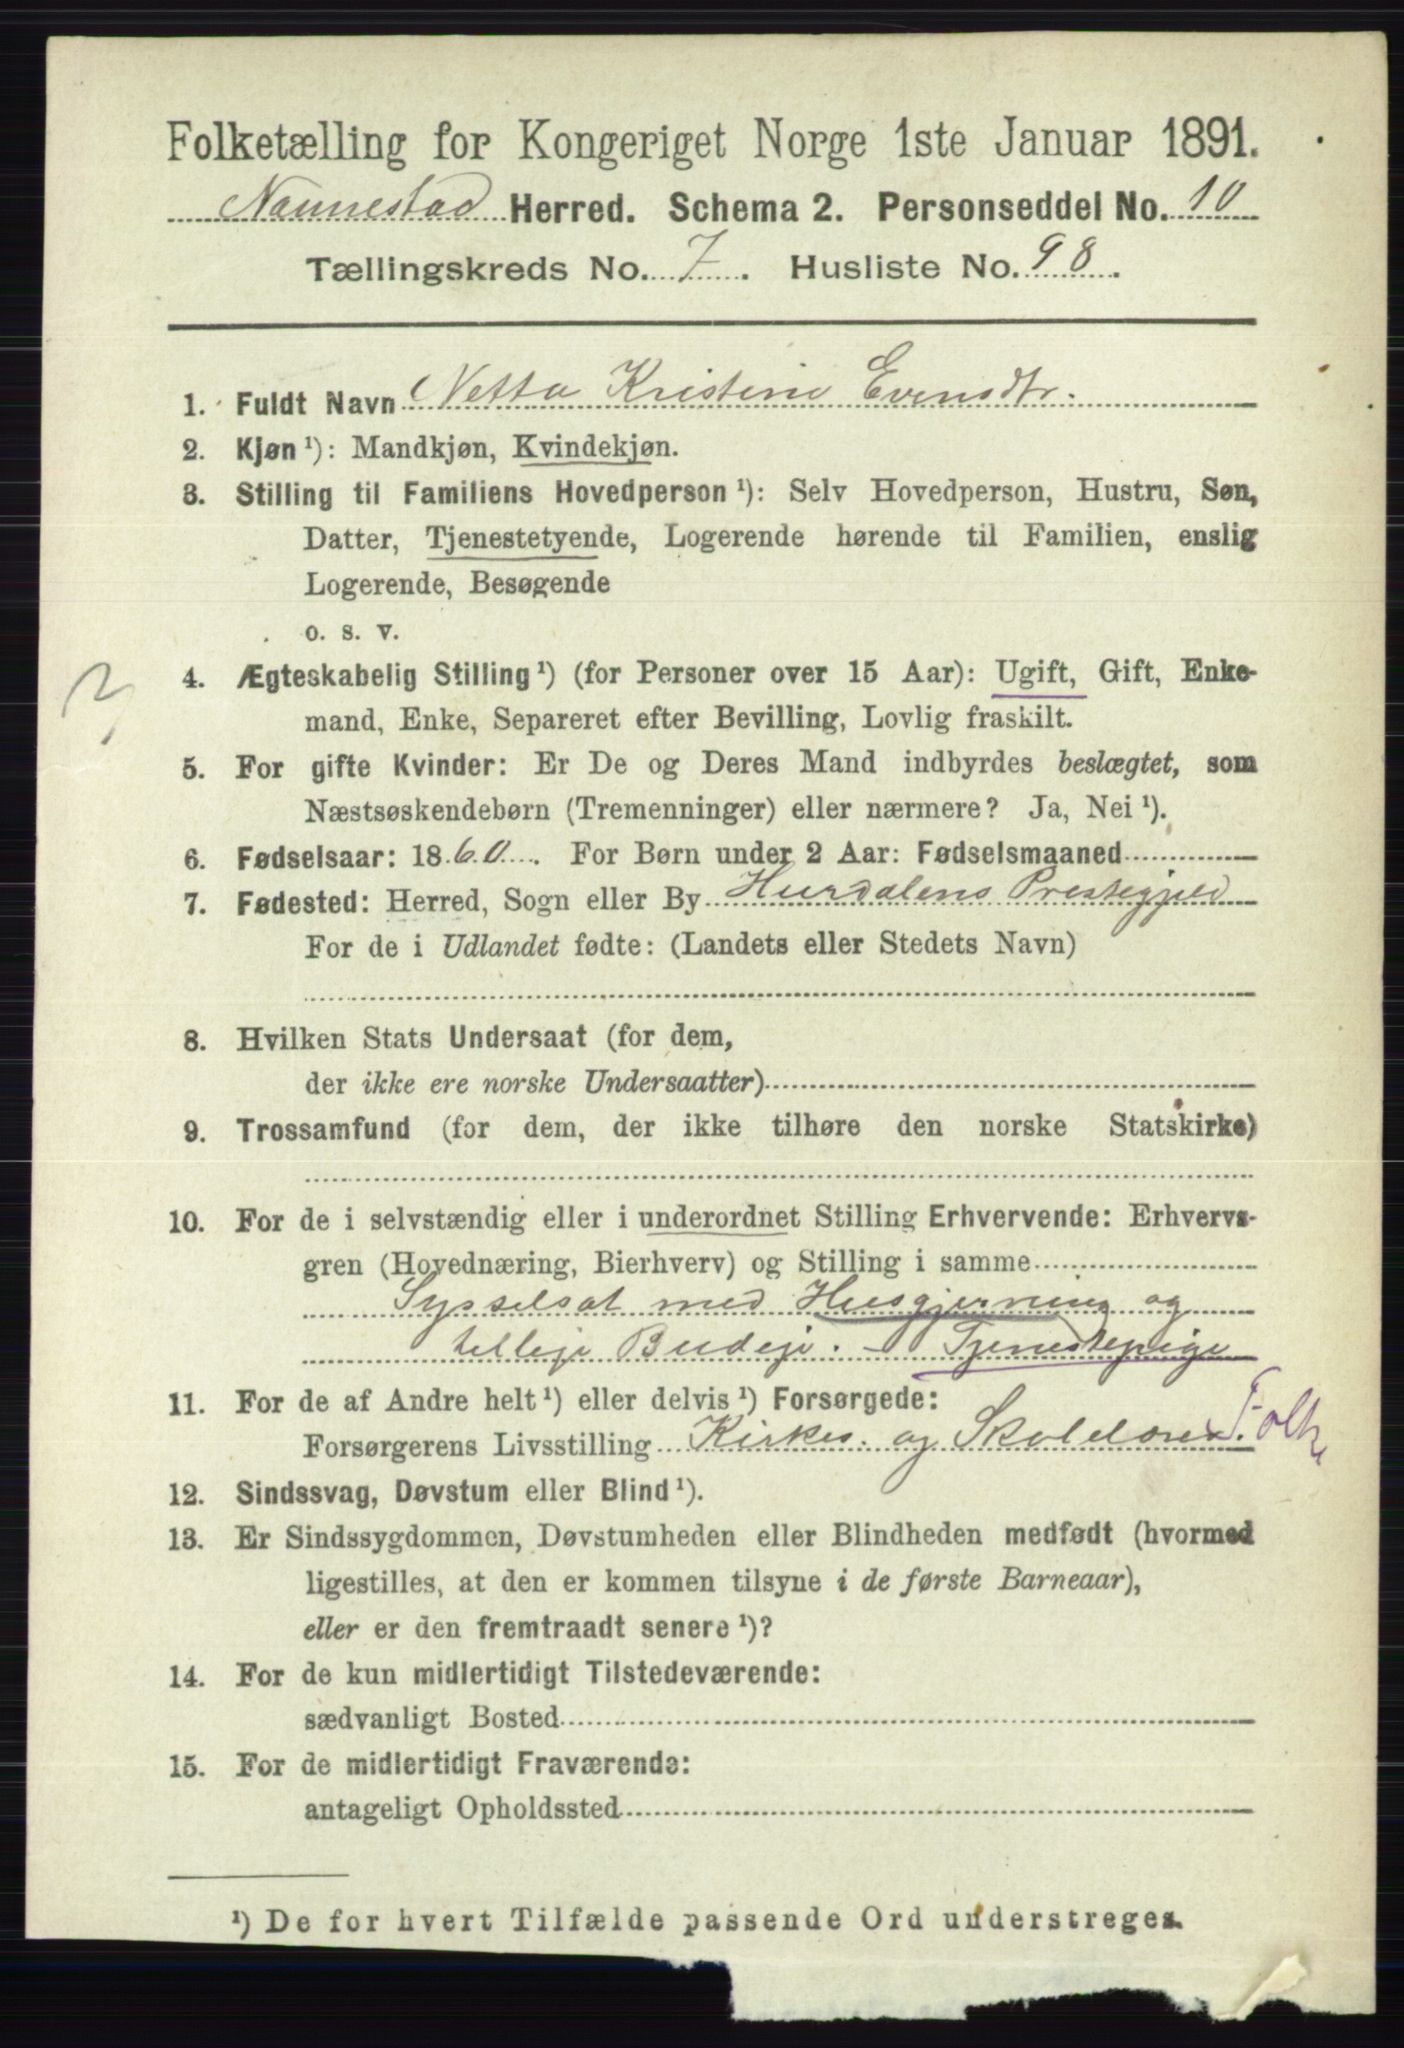 Folketælling for Kongeriget Norge 1ste Januar 1891.
Nannestad Herred. Schema 2. Personseddel No. 10
Tællingskreds No. 7. Husliste No. 98.
1. Fuldt Navn Netta Kristine Evensdtr.
2. Kjøn ¹): Mandkjøn, Kvindekjøn.
3. Stilling til Familiens Hovedperson ¹): Selv Hovedperson, Hustru, Søn,
Datter, Tjenestetyende, Logerende hørende til Familien, enslig
Logerende, Besøgende
o. s. v.
4. Ægteskabelig Stilling ¹) (for Personer over 15 Aar): Ugift, Gift, Enke-
mand, Enke, Separeret efter Bevilling, Lovlig fraskilt.
5. For gifte Kvinder: Er De og Deres Mand indbyrdes beslægtet, som
Næstsøskendebørn (Tremenninger) eller nærmere? Ja, Nei ¹).
6. Fødselsaar: 1860. For Børn under 2 Aar: Fødselsmaaned
7. Fødested: Herred, Sogn eller By Hurdalens Prestegjeld
For de i Udlandet fødte: (Landets eller Stedets Navn)
8. Hvilken Stats Undersaat (for dem,
der ikke ere norske Undersaatter)
9. Trossamfund (for dem, der ikke tilhøre den norske Statskirke)
10. For de i selvstændig eller i underordnet Stilling Erhvervende: Erhvervs-
gren (Hovednæring, Bierhverv) og Stilling i samme
Sysselsat med Husgjerning og
tillige Budeje. - Tjenestepige
11. For de af Andre helt ¹) eller delvis ¹) Forsørgede:
Forsørgerens Livsstilling Kirkes. og Skolelærer. Folk
12. Sindssvag, Døvstum eller Blind ¹).
13. Er Sindssygdommen, Døvstumheden eller Blindheden medfødt (hvormed
ligestilles, at den er kommen tilsyne i de første Barneaar),
eller er den fremtraadt senere ¹)?
14. For de kun midlertidigt Tilstedeværende:
sædvanligt Bosted
15. For de midlertidigt Fraværende:
antageligt Opholdssted
¹) De for hvert Tilfælde passende Ord understreges.